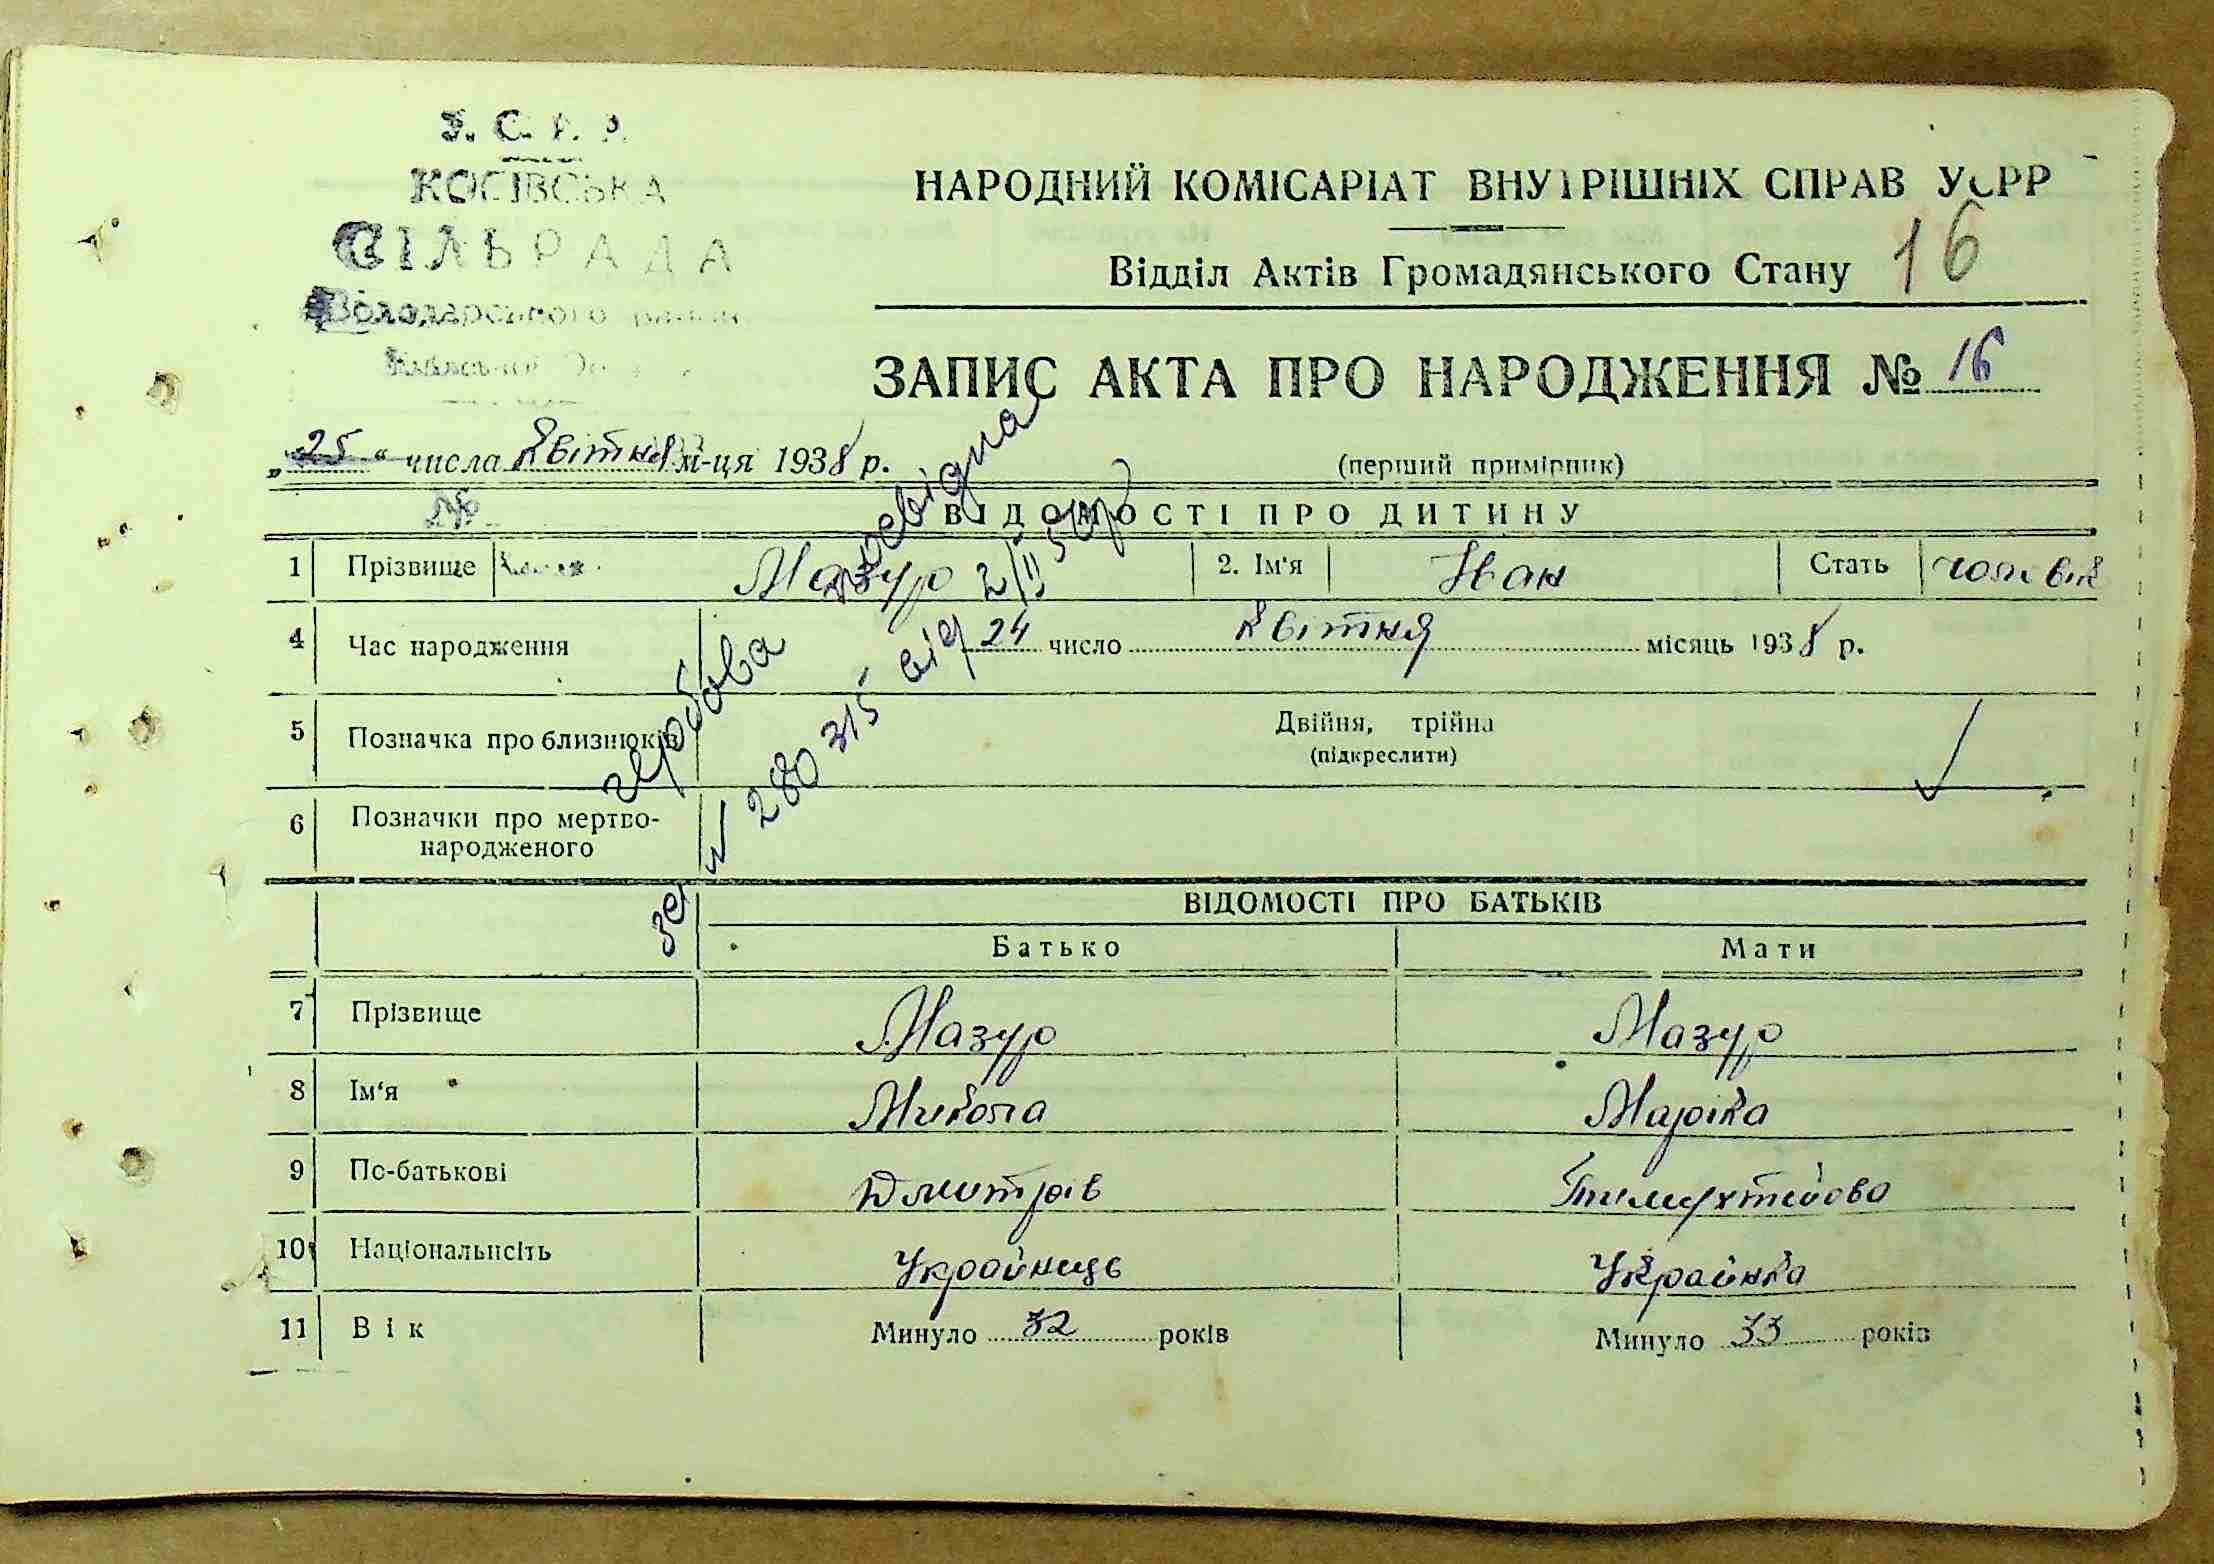 У. С. Р. Р.
КОСІВСЬКА
СІЛЬРАДА
Володарського району
НАРОДНИЙ КОМІСАРІАТ ВНУТРІШНІХ СПРАВ УСРР
Відділ Актів Громадянського Стану 16
ЗАПИС АКТА ПРО НАРОДЖЕННЯ № 16
„25“ числа Квітня м-ця 1938 р.
(перший примірник)
ВІДОМОСТІ ПРО ДИТИНУ
1 Прізвище Мазур 2. Ім'я Іван Стать
4 Час народження 24 число Квітня місяць 1938 р.
5 Позначка про близнюків Двійня, трійна
(підкреслити)
6 Позначки про мертво-
народженого
гербова
за № 280315 від 2/ІІ
ВІДОМОСТІ ПРО БАТЬКІВ
Батько Мати
7 Прізвище Мазур Мазур
8 Ім'я Микола Марійка
9 По-батькові Дмитрів
10 Національність Українець Українка
11 Вік Минуло 32 років Минуло 33 років